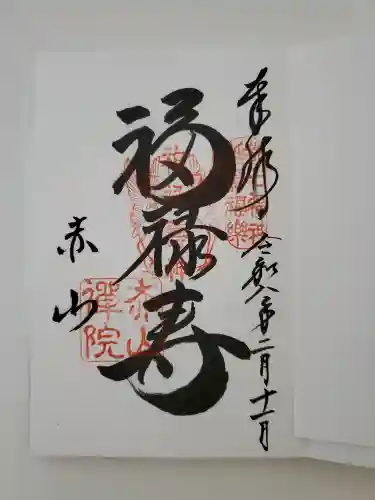 奉拝 令和六年二月十一日
福禄寿
赤山
赤山
禅院